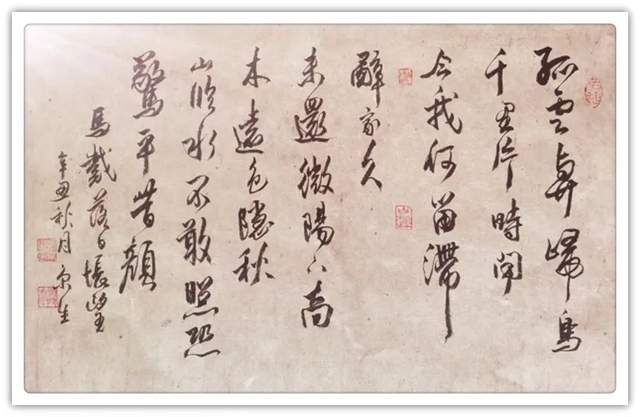 孤雲與歸鳥
千里片時間
念我何留滯
辭家久
未還微陽下喬
木遠色隱秋
山臨水不敢照恐
驚平昔顏
馬戴落日悵望
辛丑秋月